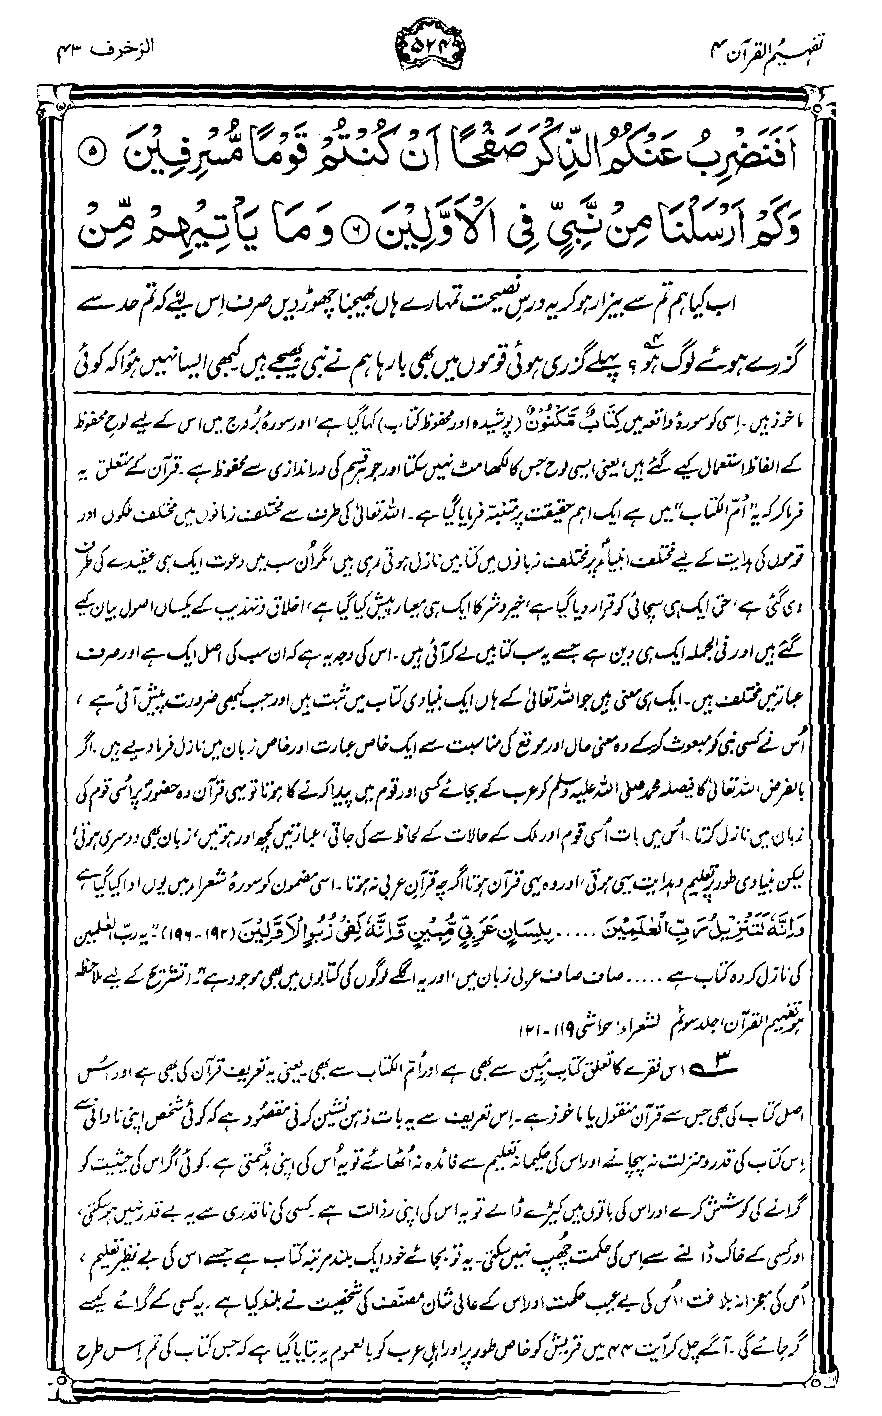 تفہیم القرآن ۴
۵۲۴
الزخرف ۴۳
اَفَنَضْرِبُ عَنْكُمُ الذِّكْرَ صَفْحًا اَنْ كُنْتُمْ قَوْمًا مُّسْرِفِيْنَ ۝۵
وَكَمْ اَرْسَلْنَا مِنْ نَّبِيٍّ فِي الْاَوَّلِيْنَ ۝۶ وَمَا يَاْتِيْهِمْ مِّنْ
اب کیا ہم تم سے بیزار ہو کر یہ درسِ نصیحت تمہارے ہاں بھیجنا چھوڑ دیں صرف اِس لیے کہ تم حد سے
گزرے ہوئے لوگ ہو۴؟ پہلے گزری ہوئی قوموں میں بھی بارہا ہم نے نبی بھیجے ہیں۔ کبھی ایسا نہیں ہُوا کہ کوئی
ماخوذ ہیں۔ اِسی کو سورۂ واقعہ میں کِتَابٌ مَّکْنُوْنٌ (پوشیدہ اور محفوظ کتاب) کہا گیا ہے، اور سورۂ بُروج میں اس کے لیے لوحِ محفوظ
کے الفاظ استعمال کیے گئے ہیں، یعنی ایسی لوح جس کا لکھا مٹ نہیں سکتا اور جو ہر قسم کی دراندازی سے محفوظ ہے۔ قرآن کے متعلق یہ
فرما کر کہ یہ ”اُمّ الکتاب“ میں ہے ایک اہم حقیقت پر متنبہ فرمایا گیا ہے۔ اللہ تعالیٰ کی طرف سے مختلف زمانوں میں مختلف ملکوں اور
قوموں کی ہدایت کے لیے مختلف انبیاءؑ پر مختلف زبانوں میں کتابیں نازل ہوتی رہی ہیں، مگر اُن سب میں دعوت ایک ہی عقیدے کی طرف
دی گئی ہے، حق ایک ہی سچائی کو قرار دیا گیا ہے، خیر و شر کا ایک ہی معیار پیش کیا گیا ہے، اخلاق و تہذیب کے یکساں اصول بیان کیے
گئے ہیں اور فی الجملہ ایک ہی دین ہے جسے یہ سب کتابیں لے کر آئی ہیں۔ اس کی وجہ یہ ہے کہ ان سب کی اصل ایک ہے اور صرف
عبارتیں مختلف ہیں۔ ایک ہی معنی ہیں جو اللہ تعالیٰ کے ہاں ایک بنیادی کتاب میں ثبت ہیں اور جب کبھی ضرورت پیش آئی ہے،
اُس نے کسی نبی کو مبعوث کر کے وہ معنی حال اور موقع کی مناسبت سے ایک خاص عبارت اور خاص زبان میں نازل فرما دیے ہیں۔ اگر
بالفرض اللہ تعالیٰ کا فیصلہ محمد صلی اللہ علیہ وسلم کو عرب کے بجائے کسی اور قوم میں پیدا کرنے کا ہوتا تو یہی قرآن وہ حضورؐ پر اُسی قوم کی
زبان میں نازل کرتا۔ اُس میں بات اُسی قوم اور ملک کے حالات کے لحاظ سے کی جاتی، عبارتیں کچھ اور ہوتیں، زبان بھی دوسری ہوتی،
لیکن بنیادی طور پر تعلیم و ہدایت یہی ہوتی، اور وہ یہی قرآن ہوتا اگرچہ قرآن عربی نہ ہوتا۔ اسی مضمون کو سورۂ شعراء میں یوں ادا کیا گیا ہے
وَاِنَّهٗ لَتَنْزِيْلُ رَبِّ الْعٰلَمِيْنَ ..... بِلِسَانٍ عَرَبِيٍّ مُّبِيْنٍ وَّاِنَّهٗ لَفِيْ زُبُرِ الْاَوَّلِيْنَ (۱۹۲-۱۹۶)۔ ”یہ رب العالمین
کی نازل کردہ کتاب ہے ..... صاف صاف عربی زبان میں، اور یہ اگلے لوگوں کی کتابوں میں بھی موجود ہے“۔ (تشریح کے لیے ملاحظہ
ہو تفہیم القرآن، جلد سوم، الشعراء، حواشی ۱۱۹-۱۲۱
۳ اس فقرے کا تعلق کتابِ مُبین سے بھی ہے اور اُمّ الکتاب سے بھی۔ یعنی یہ تعریف قرآن کی بھی ہے اور اُس
اصل کتاب کی بھی جس سے قرآن منقول یا ماخوذ ہے۔ اِس تعریف سے یہ بات ذہن نشین کرنی مقصود ہے کہ کوئی شخص اپنی نادانی سے
اِس کتاب کی قدر و منزلت نہ پہچانے اور اس کی حکیمانہ تعلیم سے فائدہ نہ اُٹھائے تو یہ اُس کی اپنی بدقسمتی ہے۔ کوئی اگر اس کی حیثیت کو
گرانے کی کوشش کرے اور اس کی باتوں میں کیڑے ڈالے تو یہ اس کی اپنی رذالت ہے۔ کسی کی ناقدری سے یہ بے قدر نہیں ہو سکتی،
اور کسی کے خاک ڈالنے سے اِس کی حکمت چھُپ نہیں سکتی۔ یہ تو بجائے خود ایک بلند مرتبہ کتاب ہے جسے اس کی بے نظیر تعلیم،
اُس کی معجزانہ بلاغت، اُس کی بے عیب حکمت اور اس کے عالی شان مصنف کی شخصیت نے بلند کیا ہے۔ یہ کسی کے گرائے کیسے
گر جائے گی۔ آگے چل کر آیت ۴۴ میں قریش کو خاص طور پر اور اہل عرب کو بالعموم یہ بتایا گیا ہے کہ جس کتاب کی تم اِس طرح